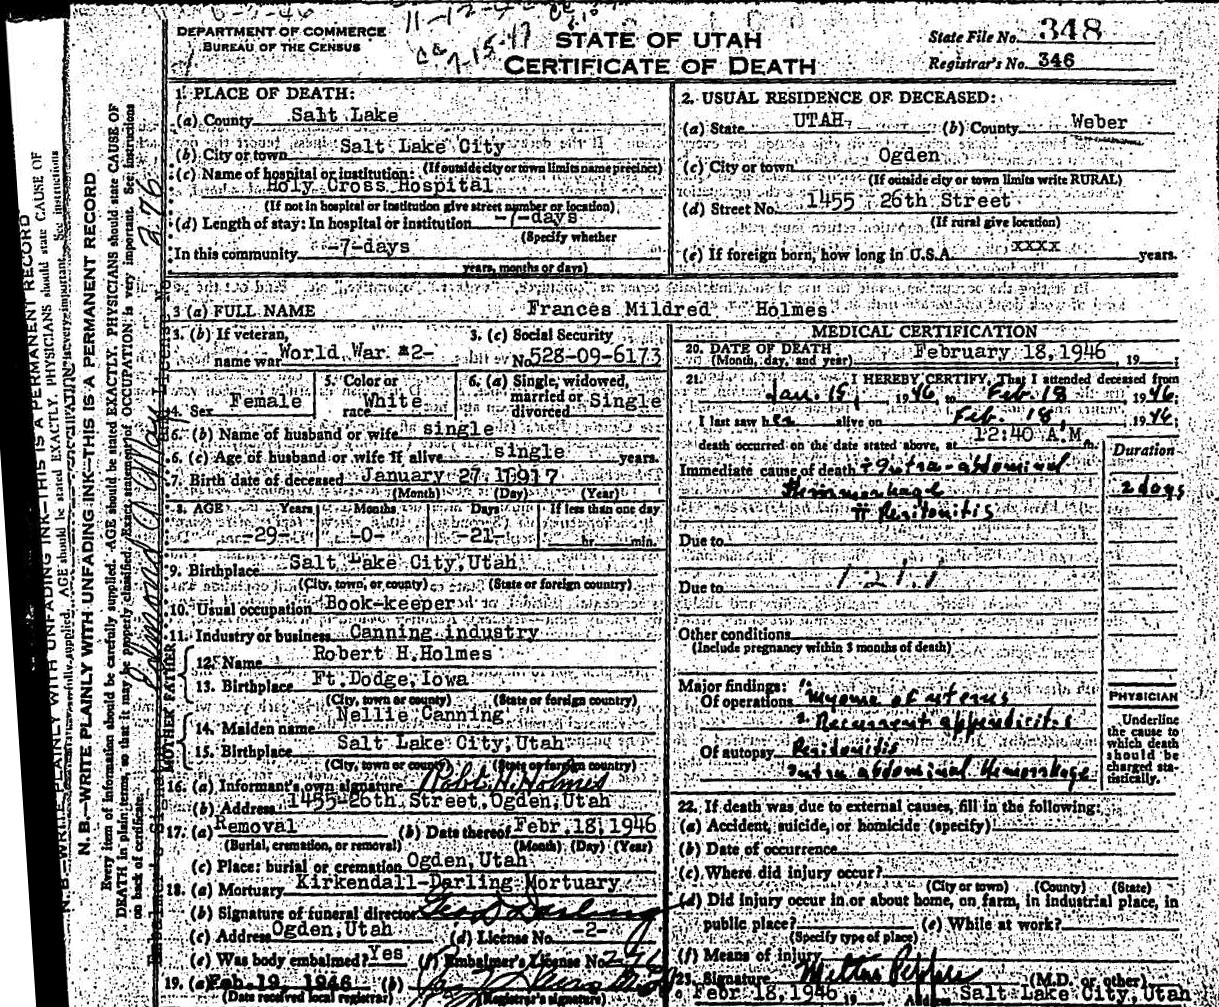 11-12-4
7-15-47
DEPARTMENT OF COMMERCE
BUREAU OF THE CENSUS
STATE OF UTAH
CERTIFICATE OF DEATH
State File No. 348
Registrar's No. 346
1. PLACE OF DEATH:
(a) County Salt Lake
(b) City or town Salt Lake City
(If outside city or town limits name precinct)
(c) Name of hospital or institution:
Holy Cross Hospital
(If not in hospital or institution give street number or location)
(d) Length of stay: In hospital or institution -7-days
(Specify whether
In this community -7-days
years, months or days)
2. USUAL RESIDENCE OF DECEASED:
(a) State UTAH (b) County Weber
(c) City or town Ogden
(If outside city or town limits write RURAL)
(d) Street No. 1455 26th Street
(If rural give location)
(e) If foreign born, how long in U.S.A. xxxx years.
3 (a) FULL NAME Frances Mildred Holmes
3. (b) If veteran,
name war World War #2-
3. (c) Social Security
No. 528-09-6173
4. Sex Female
5. Color or
race White
6. (a) Single, widowed,
married or
divorced Single
6. (b) Name of husband or wife single
6. (c) Age of husband or wife if alive single years.
7. Birth date of deceased January 27 1917
(Month) (Day) (Year)
8. AGE Years Months Days If less than one day
-29- -0- -21- hr. min.
9. Birthplace Salt Lake City, Utah
(City, town, or county) (State or foreign country)
10. Usual occupation Book-keeper
11. Industry or business Canning industry
FATHER
12. Name Robert H. Holmes
13. Birthplace Ft. Dodge, Iowa
(City, town or county) (State or foreign country)
MOTHER
14. Maiden name Nellie Canning
15. Birthplace Salt Lake City, Utah
(City, town or county) (State or foreign country)
16. (a) Informant's own signature Robt. H. Holmes
(b) Address 1455-26th Street, Ogden, Utah
17. (a) Removal (b) Date thereof Febr. 18, 1946
(Burial, cremation, or removal) (Month) (Day) (Year)
(c) Place: burial or cremation Ogden, Utah
18. (a) Mortuary Kirkendall-Darling Mortuary
(b) Signature of funeral director Geo D Darling
(c) Address Ogden, Utah (d) License No. -2-
(e) Was body embalmed? Yes (f) Embalmer's License No. 276
19. (a) Feb. 19, 1946 (b)
(Date received local registrar) (Registrar's signature)
MEDICAL CERTIFICATION
20. DATE OF DEATH February 18, 1946, 19
(Month, day, and year)
21. I HEREBY CERTIFY, That I attended deceased from
Jan. 15, 1946, to Feb. 18, 1946;
I last saw her alive on Feb. 18, 1946;
death occurred on the date stated above, at 12:40 A.M m.
Duration
Immediate cause of death Intra-abdominal
Hemmorhage 2 days
Peritonitis
Due to
Due to
Other conditions
(Include pregnancy within 3 months of death)
Major findings:
Of operations Myoma of uterus
2. Recurrent appendicitis
Of autopsy Peritonitis
intra abdominal Hemorrhage
PHYSICIAN
Underline
the cause to
which death
should be
charged sta-
tistically.
22. If death was due to external causes, fill in the following:
(a) Accident, suicide, or homicide (specify)
(b) Date of occurrence
(c) Where did injury occur?
(City or town) (County) (State)
(d) Did injury occur in or about home, on farm, in industrial place, in
public place? (e) While at work?
(Specify type of place)
(f) Means of injury
23. Signature (M.D. or other)
Febr 18, 1946 19 Address Salt Lake City, Utah
N. B.—WRITE PLAINLY WITH UNFADING INK—THIS IS A PERMANENT RECORD
Every item of information should be carefully supplied. AGE should be stated EXACTLY. PHYSICIANS should state CAUSE OF
DEATH in plain terms, so that it may be properly classified. Exact statement of OCCUPATION is very important. See instructions
on back of certificate.
276